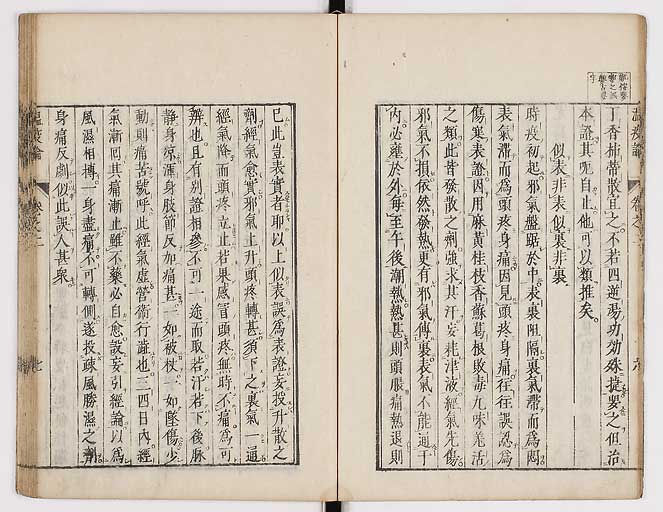 丁香柿蒂散宜之不若四逆湯功効殊捷要之但治
本證其呃自止他可以類推矣
似表非表似裏非裏
時疫初起邪氣盤踞於中表裏阻隔裏氣滯而為悶
表氣滯而為頭疼身痛因見頭疼身痛往往誤認為
傷寒表證因用麻黃桂枝香蘇葛根敗毒九味羌活
之類此皆發散之劑強求其汗妄耗津液經氣先傷
邪氣不損依然發熱更有邪氣傳裏表氣不能通于
內必壅於外每至午後潮熱熱甚則頭脹痛熱退則
已此豈表實者耶以上似表誤為表證妄投升散之
劑經氣愈實邪氣上升頭疼轉甚須下之裏氣一通
經氣降而頭疼立止若果感冒頭疼無時不痛為可
辨也且有別證相參不可一途而取若汗若下後脉
靜身涼渾身肢節反加痛甚一如被杖一如墜傷少
動則痛苦號呼此經氣虛營衛行澁也三四日內經
氣漸回其痛漸止雖不藥必自愈設妄引經論以為
風濕相搏一身盡痛不可轉側遂投疎風勝濕之劑
身痛反劇似此誤人甚衆
溫疫論
卷之二
七